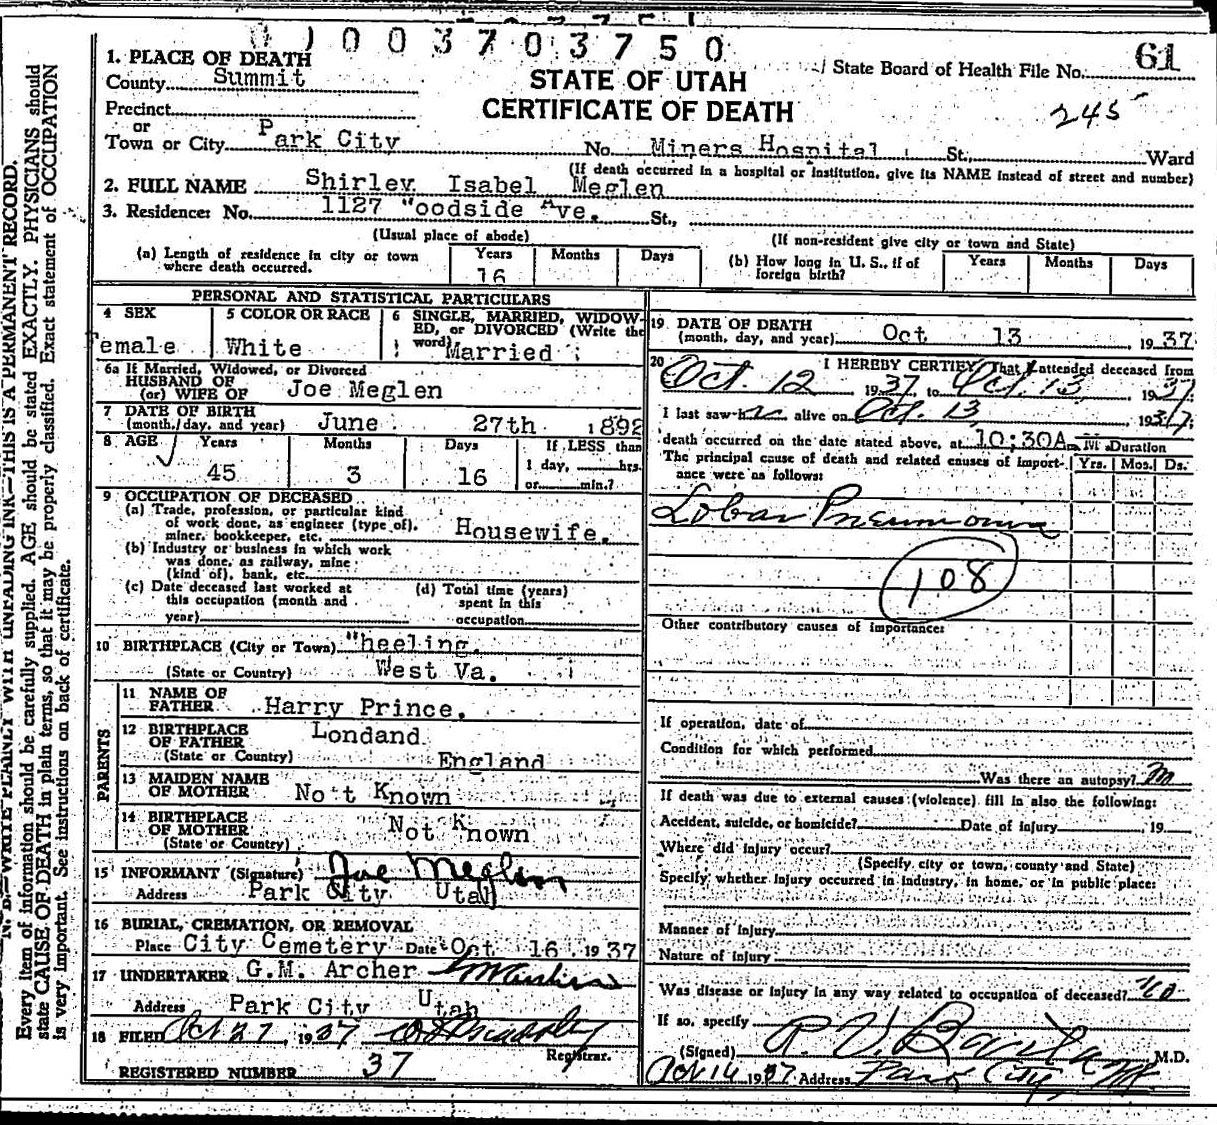 0 0 0 3 7 0 3 7 5 0
61
1. PLACE OF DEATH
County Summit
STATE OF UTAH
CERTIFICATE OF DEATH
State Board of Health File No.
245
Precinct
or
Town or City Park City No. Miners Hospital St., Ward
(If death occurred in a hospital or institution, give its NAME instead of street and number)
2. FULL NAME Shirley Isabel Meglen
3. Residence: No. 1127 Woodside Ave. St.,
(Usual place of abode)
(If non-resident give city or town and State)
(a) Length of residence in city or town where death occurred. Years 16 Months Days
(b) How long in U. S., if of foreign birth? Years Months Days
PERSONAL AND STATISTICAL PARTICULARS
4 SEX Female
5 COLOR OR RACE White
6 SINGLE, MARRIED, WIDOW-
ED, or DIVORCED (Write the
word) Married
6a If Married, Widowed, or Divorced
HUSBAND OF
(or) WIFE OF Joe Meglen
7 DATE OF BIRTH
(month, day, and year) June 27th 1892
8 AGE Years Months Days If LESS than
45 3 16 1 day, hrs.
or min.?
9 OCCUPATION OF DECEASED
(a) Trade, profession, or particular kind
of work done, as engineer (type of),
miner, bookkeeper, etc. Housewife.
(b) Industry or business in which work
was done, as railway, mine
(kind of), bank, etc.
(c) Date deceased last worked at
this occupation (month and
year)
(d) Total time (years)
spent in this
occupation
10 BIRTHPLACE (City or Town) Wheeling,
(State or Country) West Va.
PARENTS
11 NAME OF
FATHER Harry Prince.
12 BIRTHPLACE
OF FATHER Londand
(State or Country) England
13 MAIDEN NAME
OF MOTHER Not Known
14 BIRTHPLACE
OF MOTHER Not Known
(State or Country)
15 INFORMANT (Signature) Joe Meglen
Address Park City Utah
16 BURIAL, CREMATION, OR REMOVAL
Place City Cemetery Date Oct 16 1937
17 UNDERTAKER G.M. Archer
Address Park City Utah
18 FILED Oct 27, 1937
Registrar.
REGISTERED NUMBER 37
19 DATE OF DEATH
(month, day, and year) Oct 13, 1937
20 I HEREBY CERTIFY, That I attended deceased from
Oct. 12 1937 to Oct. 13, 1937.
I last saw her alive on Oct. 13, 1937,
death occurred on the date stated above, at 10:30A M. Duration
The principal cause of death and related causes of import-
ance were as follows: Yrs. Mos. Ds.
Lobar Pneumonia
108
Other contributory causes of importance:
If operation, date of
Condition for which performed
Was there an autopsy? no
If death was due to external causes (violence) fill in also the following:
Accident, suicide, or homicide? Date of injury , 19
Where did injury occur?
(Specify city or town, county and State)
Specify whether injury occurred in industry, in home, or in public place:
Manner of injury
Nature of injury
Was disease or injury in any way related to occupation of deceased? no
If so, specify
(Signed) M.D.
Oct 14 1937 Address Park City
N. B.—WRITE PLAINLY WITH UNFADING INK—THIS IS A PERMANENT RECORD.
Every item of information should be carefully supplied. AGE should be stated EXACTLY. PHYSICIANS should
state CAUSE OF DEATH in plain terms, so that it may be properly classified. Exact statement of OCCUPATION
is very important. See instructions on back of certificate.